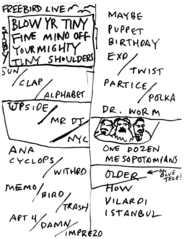 FREEBIRD LIVE
BLOW YR TINY
FINE MIND OFF
YOUR MIGHTY
TINY SHOULDERS
SUN/
CLAP/
ALPHABET
UPSIDE/
MR DT/
NYC
ANA
CYCLOPS/
WITHRO
MEMO/
BIRD/
TRASH
APT 4/
DAMN/
IMPREZO
MAYBE
PUPPET
BIRTHDAY
EXO/
TWIST
PARTICE/
POLKA
DR. WORM
ONE DOZEN
MESOPOTOMIANS
OLDER
BLUE
TELE!
HOW
VILARDI
ISTANBUL